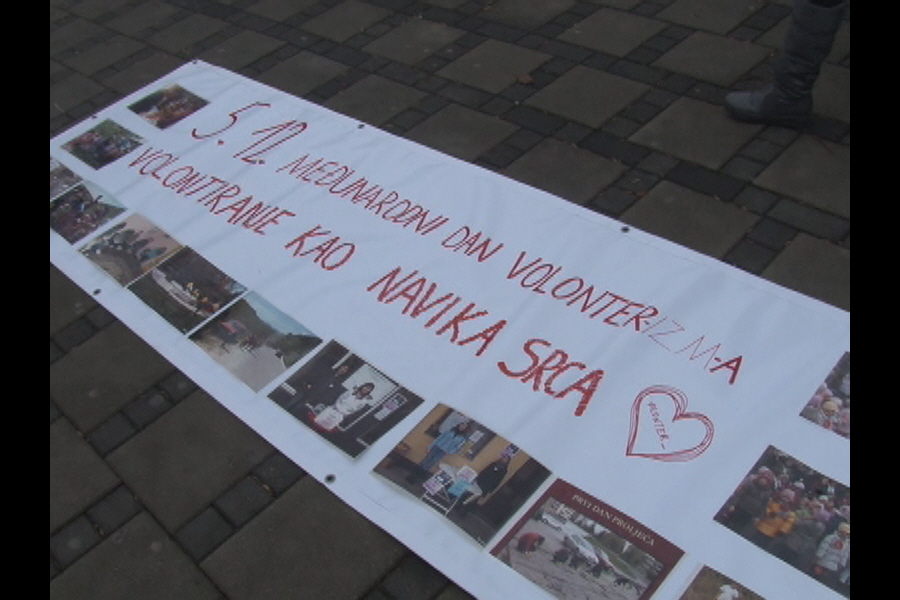 5. 12. MEĐUNARODNI DAN VOLONTER-IZ M-A
VOLONTIRANJE KAO NAVIKA SRCA
VOLONTER_
PRVI DAN PROLJEĆA